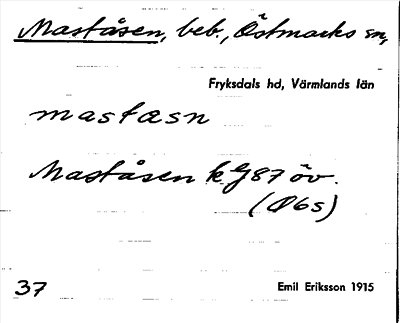 Maståsen, beb., Östmarks sn,
Fryksdals hd, Värmlands län
mastæsn
Maståsen k G87 öv.
(Ö6s)
37
Emil Eriksson 1915